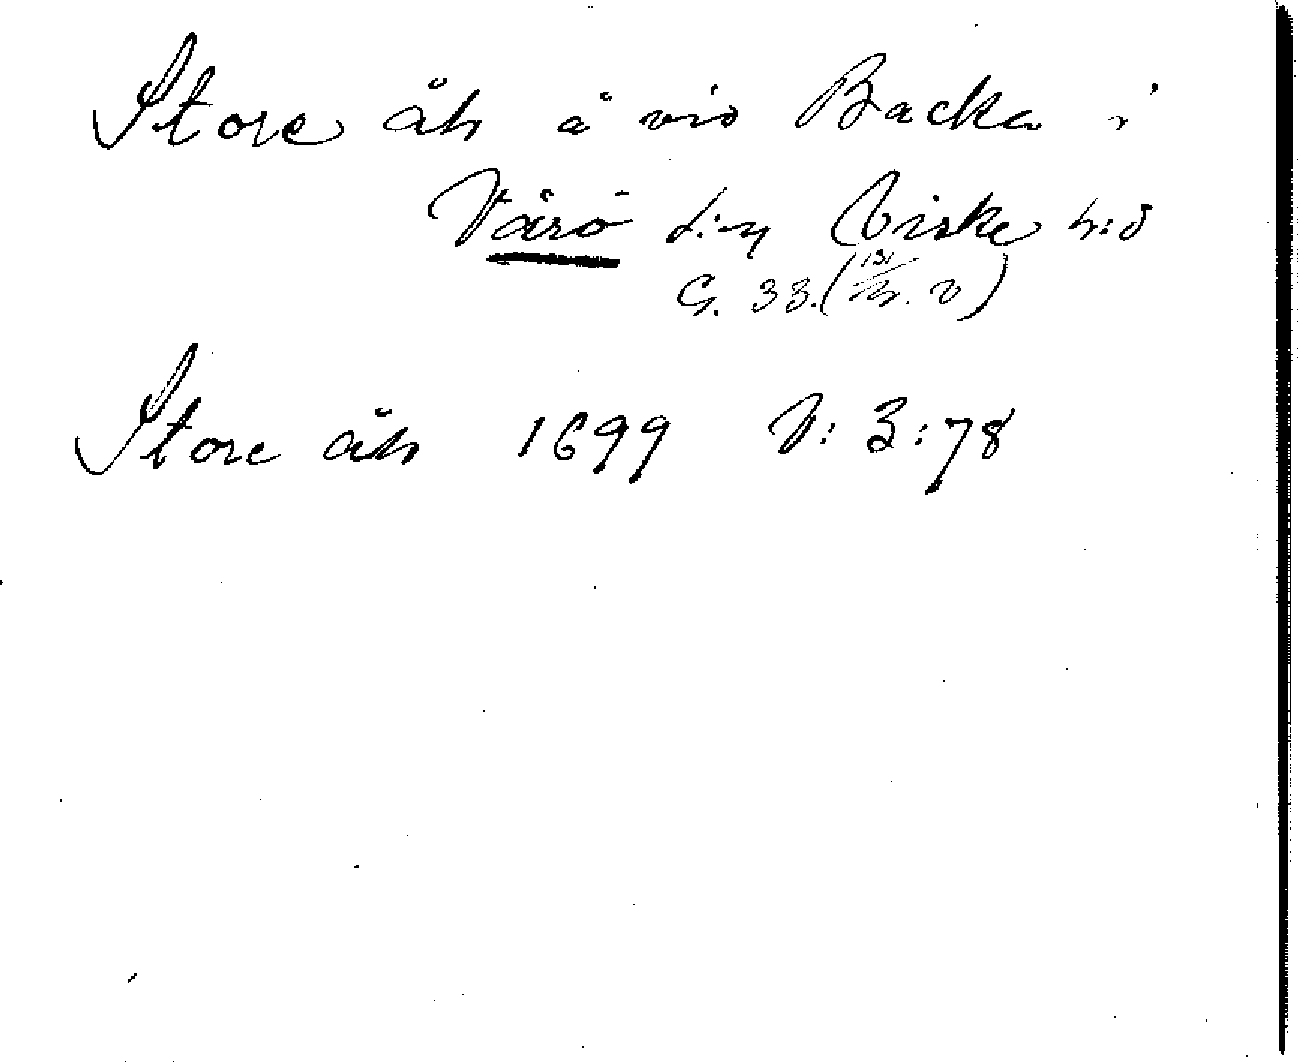 Store åh å vid Backa i
Värö s:n Viske h:d
G. 33.
Store åh 1699 V: 3:78